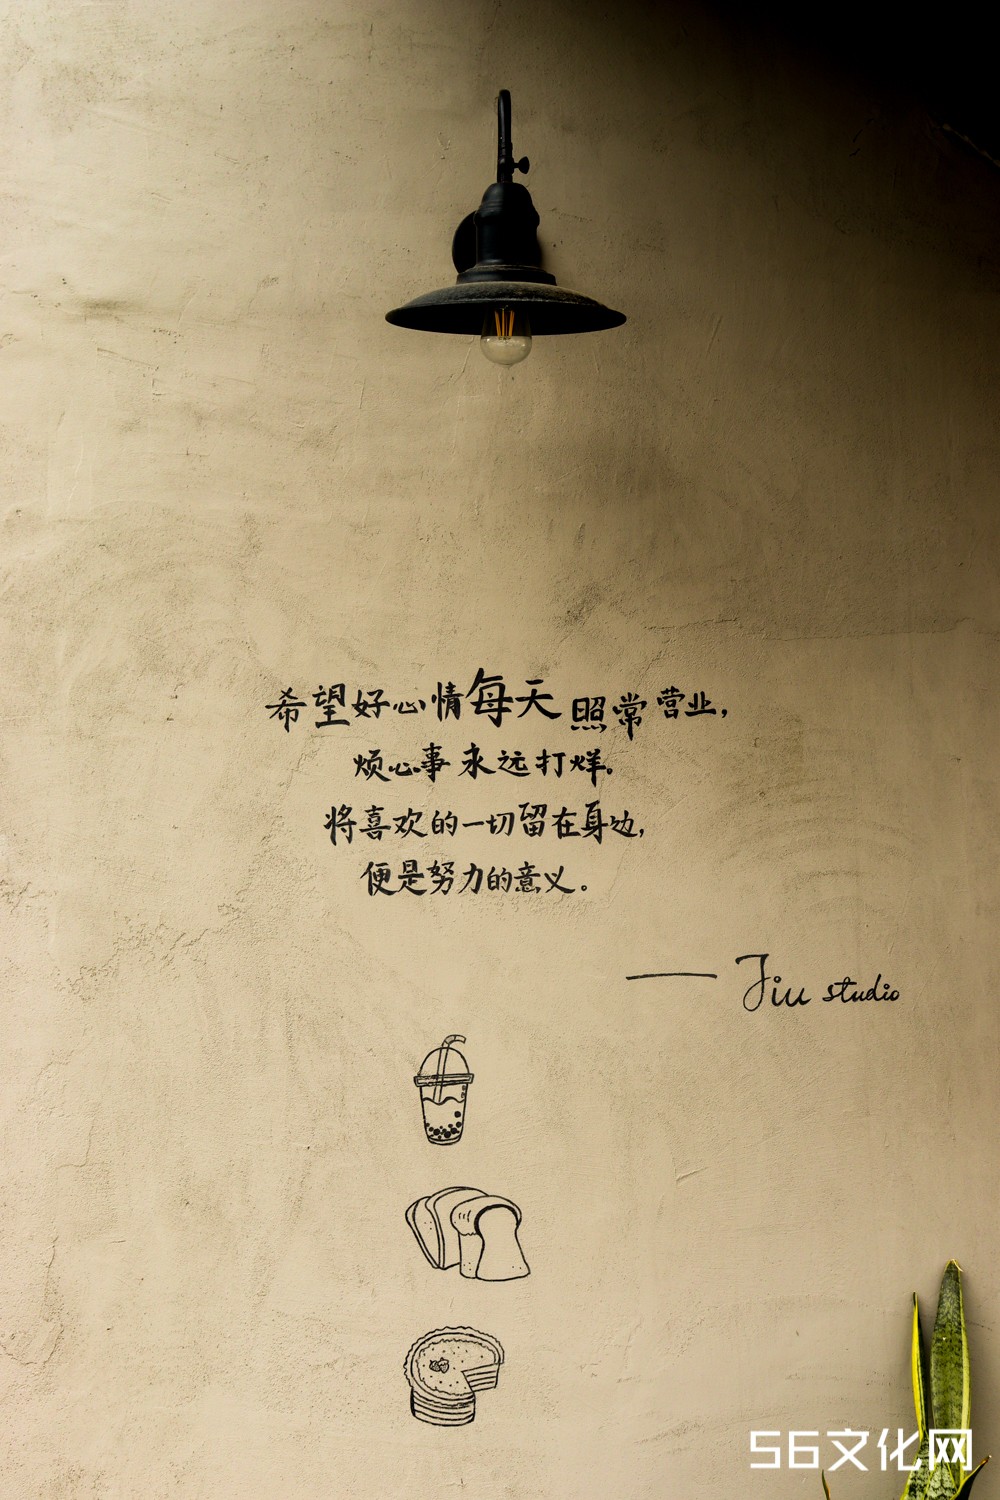 希望好心情每天照常营业，
烦心事永远打烊。
将喜欢的一切留在身边，
便是努力的意义。
—— Jiu studio
56文化网